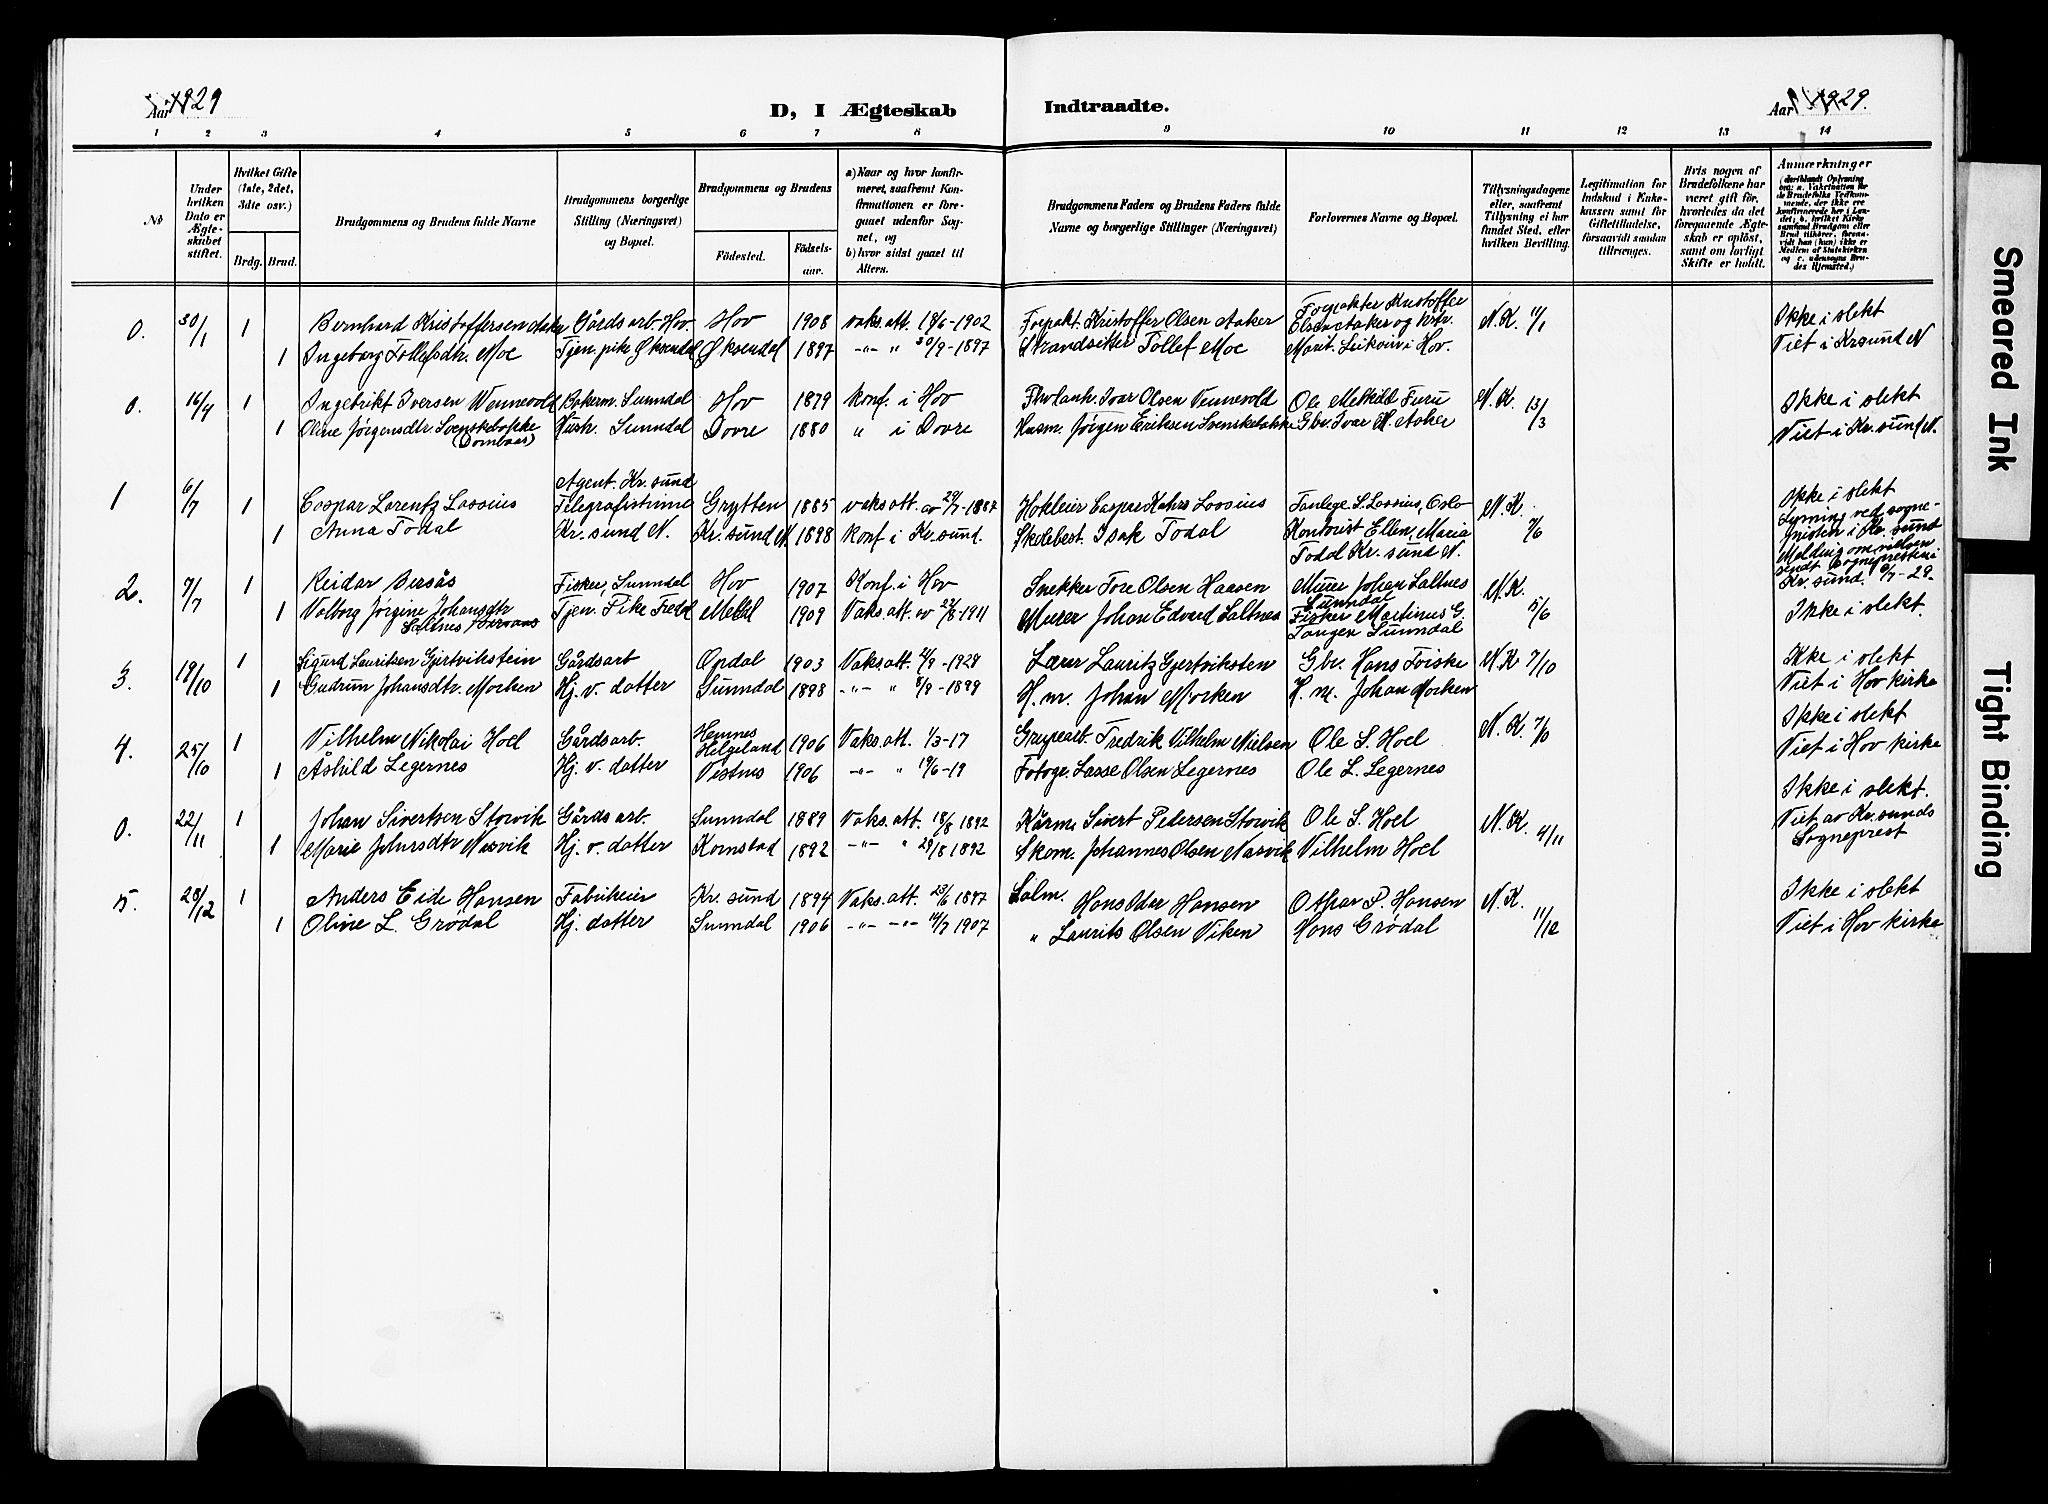 Aar 1929
D, I Ægteskab Indtraadte.
Aar 1929.
1 2 3 4 5 6 7 8 9 10 11 12 13 14
No
Under hvilken Dato er Ægteskabet stiftet.
Hvilket Gifte (1ste, 2det, 3dte osv.)
Brdg. Brud.
Brudgommens og Brudens fulde Navne
Brudgommens borgerlige Stilling (Næringsvei) og Bopæl.
Brudgommens og Brudens
Födested. Födselsaar.
a) Naar og hvor konfirmeret, saafremt Konfirmationen er foregaaet udenfor Sognet, og
b) hvor sidst gaaet til Alters.
Brudgommens Faders og Brudens Faders fulde Navne og borgerlige Stillinger (Næringsvei)
Forlovernes Navne og Bopæl.
Tillysningsdagene eller, saafremt Tillysning ei har fundet Sted, efter hvilken Bevilling.
Legitimation for Indskud i Enkekassen samt for Giftetilladelse, forsaavidt saadan tiltrænges.
Hvis nogen af Brudefolkene har været gift før, hvorledes da det foregaaende Ægteskab er opløst, samt om lovligt Skifte er holdt.
Anmærkninger
0. 30/1 1 Bernhard Kristoffersen Aaker Gårdsarb. Hov. Hov 1908 vaks. att. 18/6-1902 Forpakt. Kristoffer Olsen Aaker Forpakter Kristoffer Olsen Aaker og Krk. N.K. 11/1 Ikke i slekt
1 Ingeborg Tollefsdtr. Moe Tjen. pike Øksendal Øksendal 1897 -"- " 30/9-1897 Strandsitter Tollef Moe Marit Leikvin i Hov. Viet i Krsund N
0. 16/4 1 Ingebrikt Iversen Wennevold Bakerm. Sunndal Hov 1879 Konf. i Hov Iver Olsen Vennevold Ole Metkild Furu N.K. 13/3 Ikke i slekt
1 Oline Jørgensdtr. Svenskebakke (Dombaas) Husm. Sunndal Dovre 1880 " i Dovre Husm. Jörgen Eriksen Svenskebakke Gbr. Ivar N. Aaker Viet i Kr.sund N.
1 6/7 1 Caspar Lorentz Lossius Agent. Kr. sund Grytten 1885 vaks att. av 29/7-1887 Caspar Lossius Tanlege S. Lossius, Oslo N.K. 7/6 Ikke i slekt
1 Anna Todal Telegrafistinne Kr. sund N. Kr. sund N. 1898 konf i Kr. sund. Skolebest. Isak Todal Kontorist Ellen Maria Todal Kr. sund N. Lysning ved sognepresten i Kr. sund
Melding om vielsen sendt sognepresten i Kr. sund. 9/7-29-
2. 7/7 1 Reidar Bersås Fisker, Sunndal Hov 1907 Konf. i Hov Snekker Tore Olsen Haasen Murer Johan Saltnes Sunndal N.K. 15/6
1 Valborg Jørgine Johansdtr Saltnes Tjen. Pike Fredø 1909 Vaks. att av 22/8-1911 Murer Johan Edvard Saltnes Fisker Martinus G. Tangen Sunndal Ikke i slekt.
3. 19/10 1 Sigurd Lauritsen Gjertvikstein Gårdsarb Opdal 1903 Vaks. att. 2/9-1924 Lærer Lauritz Gjertviksten Gbr. Hans Foiske N.K 7/10 Ikke i slekt
1 Gudrun Johansdtr. Morken Hj. v. datter Sunndal 1898 -"- " 8/9-1899 H.m. Johan Morken H.m. Johan Morken Viet i Hov kirke
4. 25/10 1 Vilhelm Nikolai Hoel Gårdsarb. Hemnes Helgeland 1906 Vaks. att. 1/3-17 Grupearb. Fredrik Vilhelm Nielsen Ole S. Hoel N.K. 7/10 Ikke i slekt
1 Åshild Legernes Hj. v. datter Vestnes 1906 -"- " 19/6-19 Fotogr. Lasse Olsen Legernes Ole L. Legernes Viet i Hov kirke
0. 22/11 1 Johan Sivertsen Storvik Gårdsarb. Sunndal 1889 Vaks. att. 18/8 1892 Kårm. Sivert Pedersen Storvik Ole S. Hoel N.K. 4/11 Ikke i slekt.
1 Marie Johnsdtr Nasvik Hj. v. datter Kornstad 1892 -"- " 29/8 1892 Skom. Johannes Olsen Nasvik Vilhelm Hoel Viet av Kr. sunds Sogneprest
5. 28/12 1 Anders Eide Hansen Fabrikeier Kr. sund 1894 Vaks. att. 23/6 1897 Salm. Hans Hansen Othar P. Hansen N.K. 11/12 Ikke i slekt
1 Oline L. Grødal Hj. datter Sunndal 1906 -"- -"- 14/7 1907 " Laurits Olsen Viken Hans Grødal Viet i Hov kirke
Smeared Ink
Tight Binding